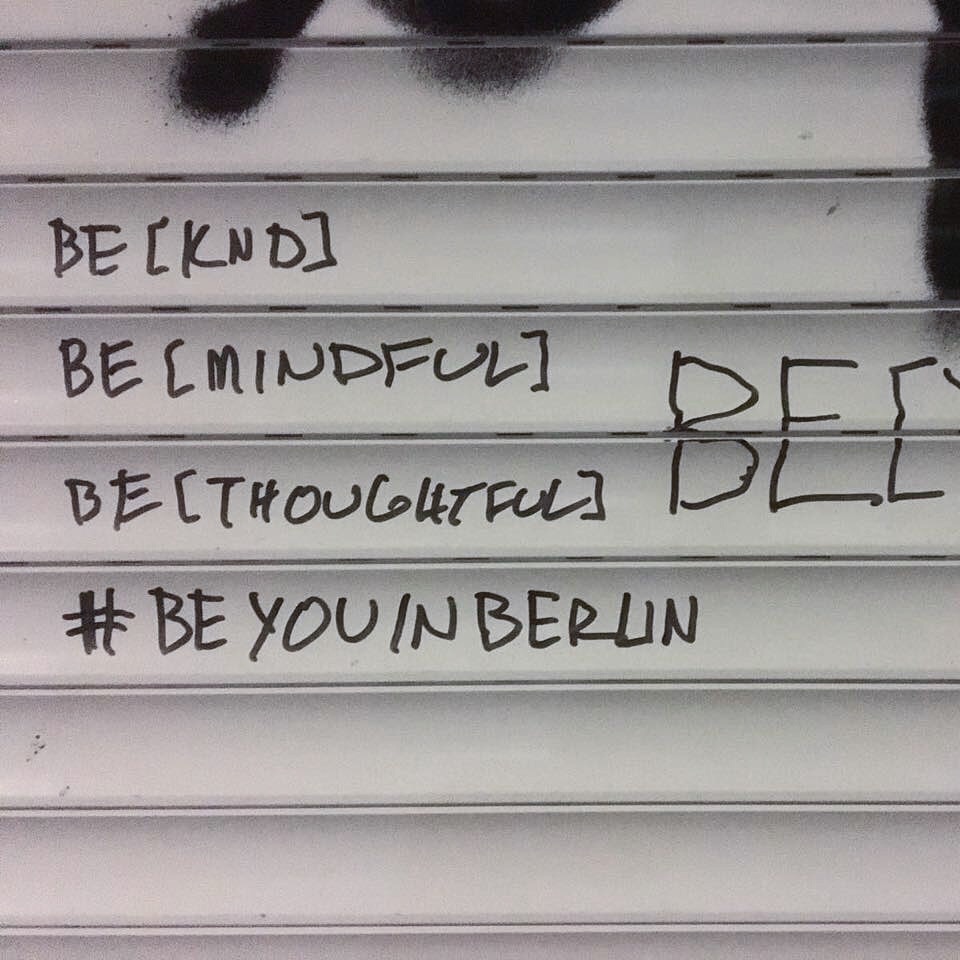 BE [KND]
BE [MINDFUL]
BE [THOUGHTFUL]
#BEYOUINBERLIN
BE[